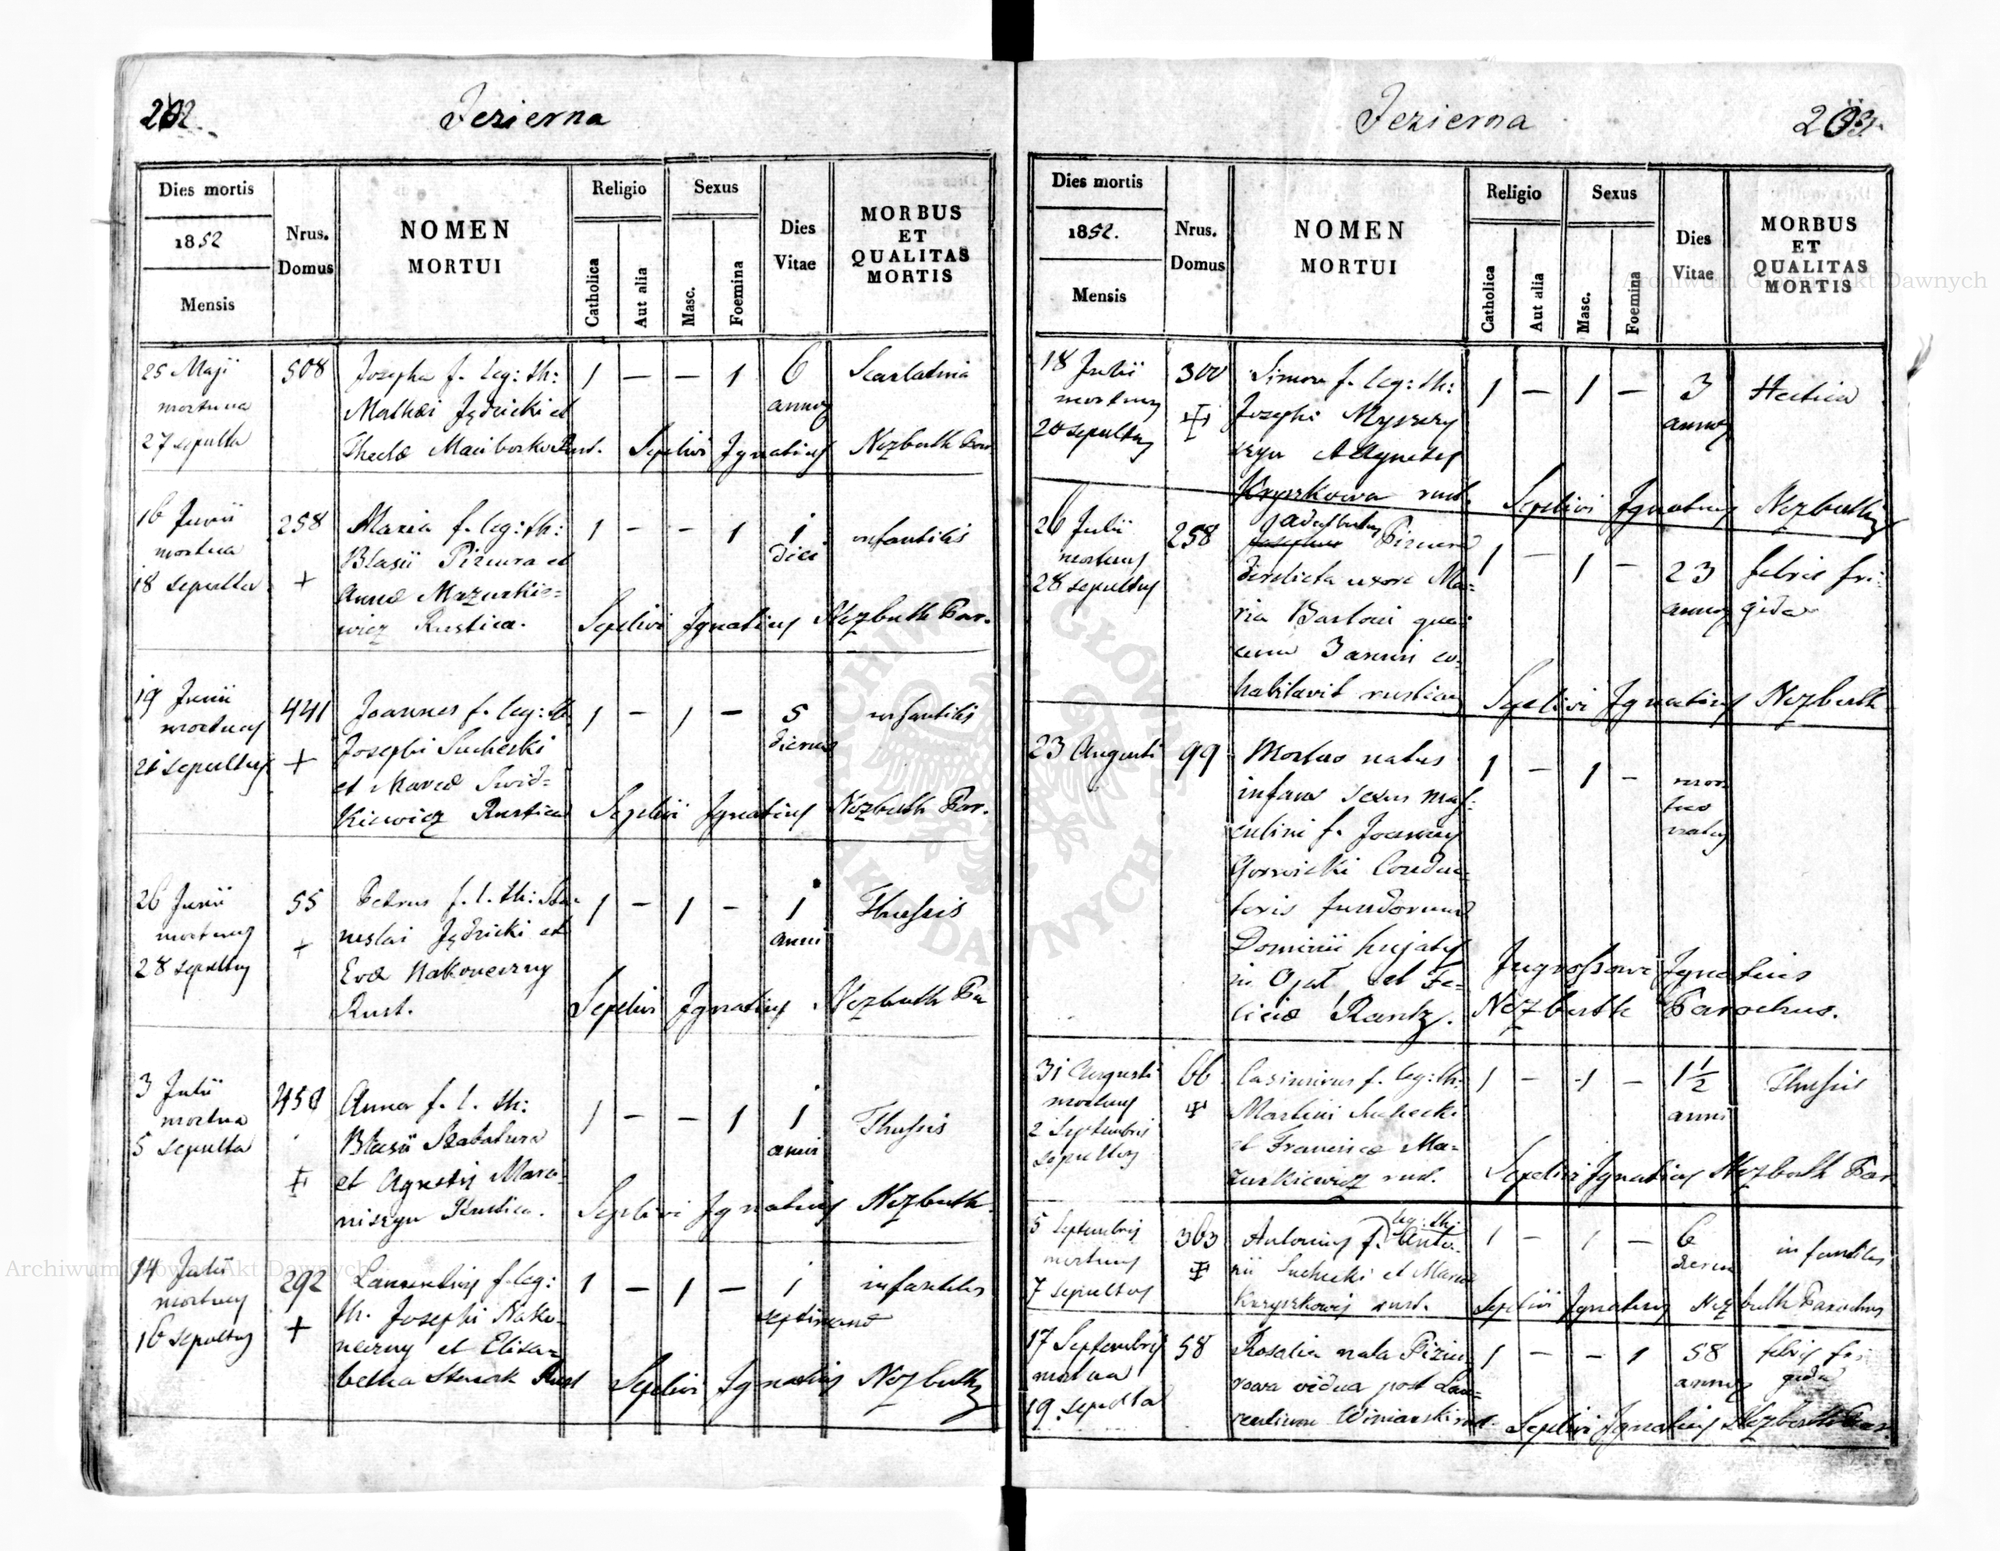 202.
Jezierna
Dies mortis
1852
Mensis
Nrus.
Domus
NOMEN
MORTUI
Religio
Catholica
Aut alia
Sexus
Masc.
Foemina
Dies
Vitae
MORBUS
ET
QUALITAS
MORTIS
25 Maji
mortua
27 sepulta
508
Josepha f. leg: th:
Mathæi Jędricki et
Theclæ
1 — — 1
6
annor
Scarlatina
Sepelivi Ignatius Nezbuth Par
16 Junii
mortua
18 sepulta
258
+
Maria f. leg: th:
Blasii Piziura et
Annæ Mazurkie=
wicz Rustica.
1 — — 1
1
diei
infantilis
Sepelivi Ignatius Nezbuth Par.
19 Junii
mortuus
21 sepultus
441
+
Joannes f. leg: th
Josephi Suchecki
et Mariæ Swid=
Kiewicz Rusticus
1 — 1 —
5
dierum
infantilis
Sepelivi Ignatius Nezbuth Par.
26 Junii
mortuus
28 sepultus
55
+
Petrus f. l. th: Sta=
nislai Jędricki et
Evæ Nakoneczny
Rust.
1 — 1 —
1
anni
Thussis
Sepelivi Ignatius Nezbuth Pa
3 Julii
mortua
5 sepulta
458
Anna f. l. th:
Blasii Szabatura
et Agnetis Marci=
niszyn Rustica.
1 — — 1
1
anni
Thussis
Sepelivi Ignatius Nezbuth
14 Julii
mortuus
16 sepultus
292
+
Laurentius f. leg:
th. Josephi Nako=
neczny et Elisa=
betha Rust
1 — 1 —
1
infantilis
Sepelivi Ignatius Nezbuth
Jezierna
203.
Dies mortis
1852.
Mensis
Nrus.
Domus
NOMEN
MORTUI
Religio
Catholica
Aut alia
Sexus
Masc.
Foemina
Dies
Vitae
MORBUS
ET
QUALITAS
MORTIS
18 Julii
mortuus
20 sepultus
300
Simon f. leg: th:
Josephi
et Agnetis
Kryszkowa rust.
1 — 1 —
3
annor
Hectica
Sepelivi Ignatius Nezbuth
26 Julii
mortuus
28 sepultus
258
Adalbertus
Josephus Piziura
derelicta uxore Ma=
ria Bartoni qua=
cum 3 annis co=
habitavit rusticus
1 — 1 —
23
annor
febris fri=
gida
Sepelivi Ignatius Nezbuth
23 Augusti
99
Mortuo natus
infans sexus mas=
culini f. Joannis
Gorwicki Conduc=
toris fundorum
Dominii hujatis
et Fe=
liciæ Rantz.
1 — 1 —
mor
tuo
natus
Ingrossavi Ignatius
Nezbuth Parochus.
31 Augusti
mortuus
2 Septembris
sepultus
66
Casimirus f. leg: th:
Martini Suchecki
et Franciscæ Ma=
zurkiewicz rust.
1 — 1 —
1 1/2
anni
Thussis
Sepelivi Ignatius Nezbuth Par.
5 Septembris
mortuus
7 sepultus
363
leg: th:
Antonius f. Anto=
nii Suchecki et Mariæ
Kryszkowij rust.
1 — 1 —
6
dierum
infantilis
Sepelivi Ignatius Nezbuth Parochus
17 Septembris
mortua
19 sepulta
58
Rosalia nata Piziu=
rowa vidua post Lau=
rentium Winiarski rust.
1 — — 1
58
annor
febris fri
gida
Sepelivi Ignatius Nezbuth Par.
Archiwum Główne Akt Dawnych
Archiwum Główne Akt Dawnych
ARCHIWUM GŁÓWNE AKT DAWNYCH